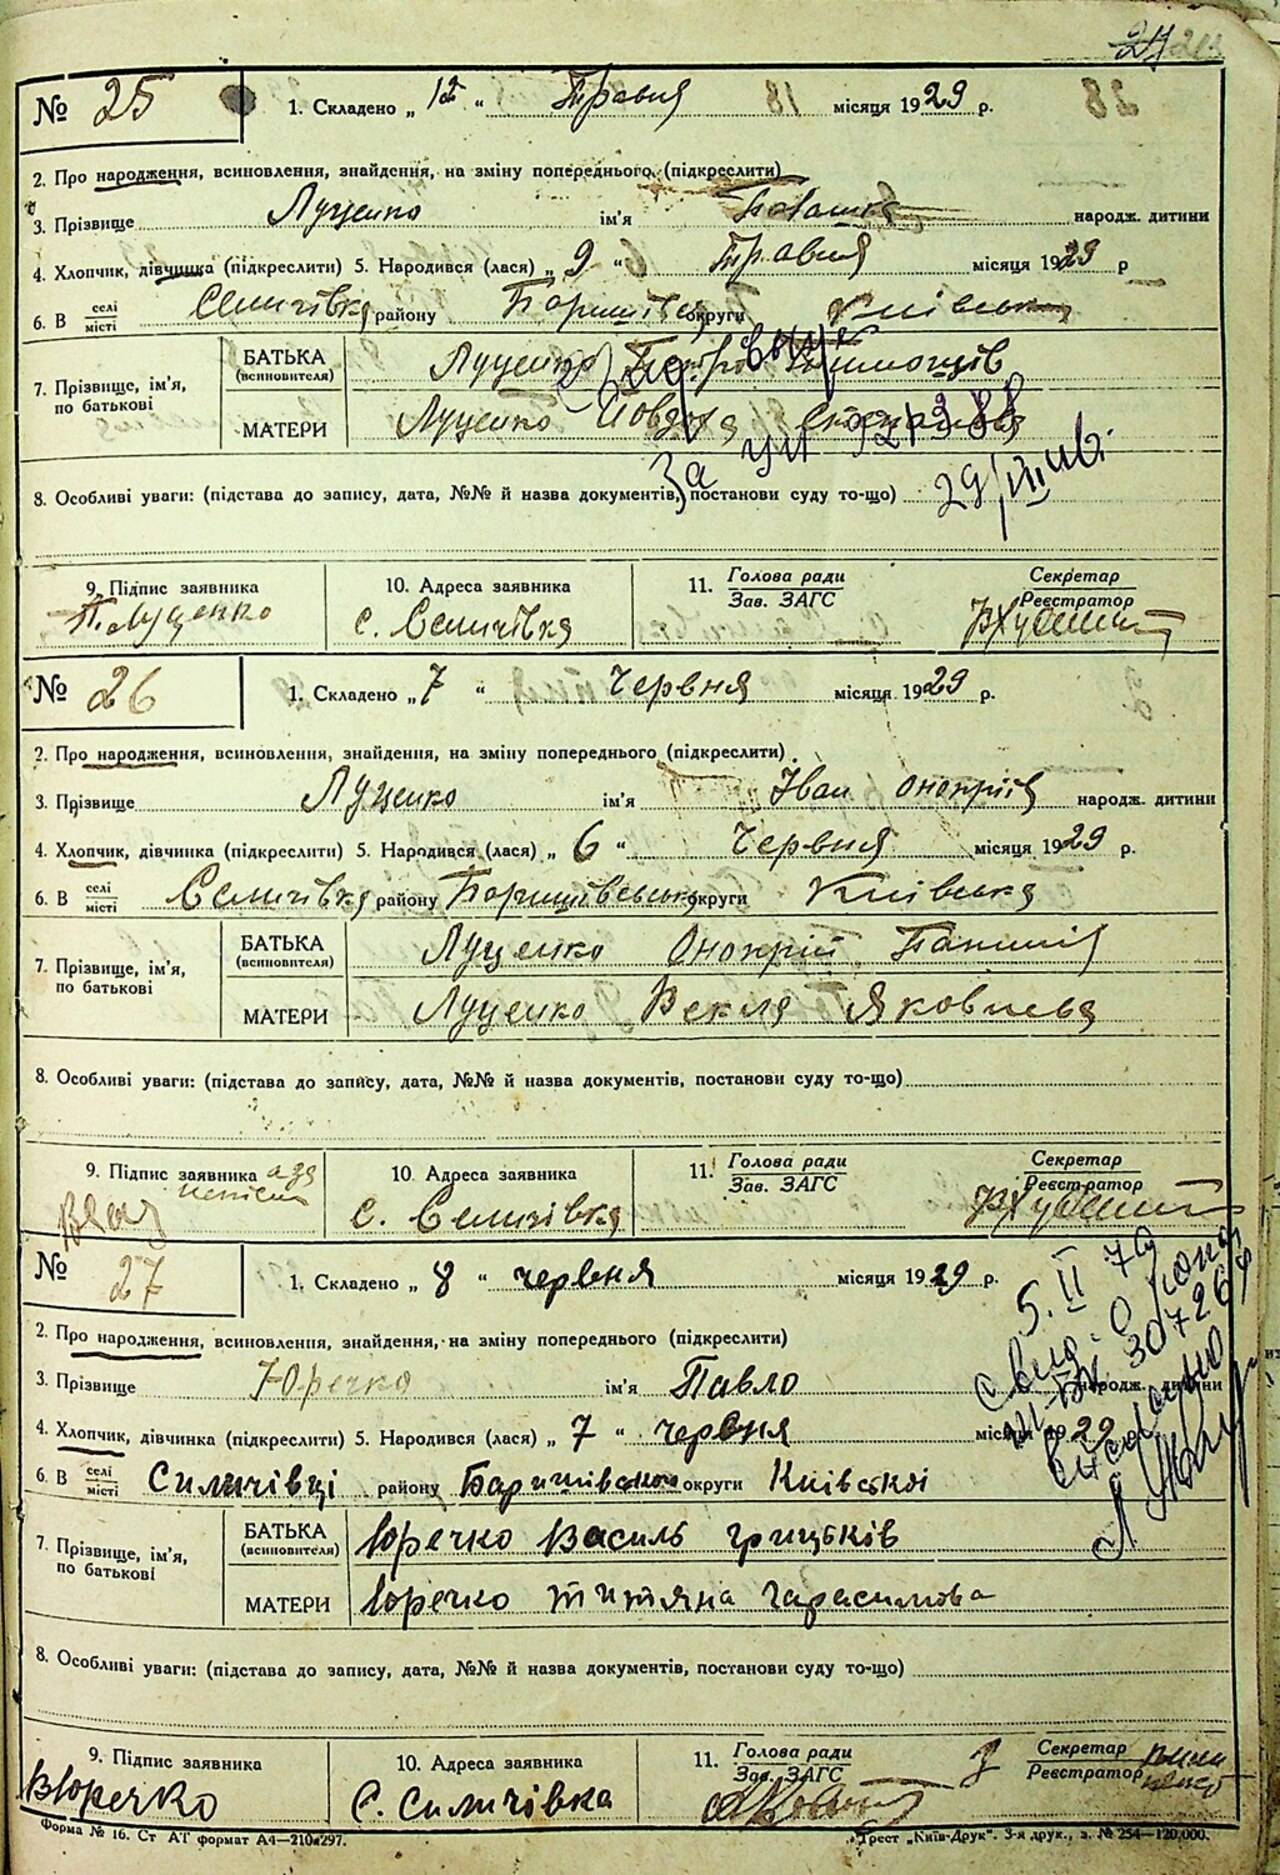 № 25 1. Складено „ 12 “ Травня місяця 1929 р.
2. Про народження, всиновлення, знайдення, на зміну попереднього (підкреслити)
3. Прізвище Луценко ім'я народж. дитини
4. Хлопчик, дівчинка (підкреслити) 5. Народився (лася) „ 9 “ Травня місяця 1929 р
6. В селі/місті Селичівка району Баришівськ округи Київська
7. Прізвище, ім'я, по батькові
БАТЬКА (всиновителя) Луценко Петро Тимошів
МАТЕРИ Луценко Повдоха
За
8. Особливі уваги: (підстава до запису, дата, №№ й назва документів, постанови суду то-що) 29/VII
9. Підпис заявника 10. Адреса заявника 11. Голова ради Секретар
Зав. ЗАГС Реєстратор
П. Луценко с. Селичівка
№ 26 1. Складено „ 7 “ Червня місяця 1929 р.
2. Про народження, всиновлення, знайдення, на зміну попереднього (підкреслити)
3. Прізвище Луценко ім'я Іван Онопріїв народж. дитини
4. Хлопчик, дівчинка (підкреслити) 5. Народився (лася) „ 6 “ Червня місяця 1929 р.
6. В селі/місті Селичівка району Баришівська округи Київська
7. Прізвище, ім'я, по батькові
БАТЬКА (всиновителя) Луценко Онопрій
МАТЕРИ Луценко Векля Яковлева
8. Особливі уваги: (підстава до запису, дата, №№ й назва документів, постанови суду то-що)
9. Підпис заявника 10. Адреса заявника 11. Голова ради Секретар
Зав. ЗАГС Реєстратор
с. Селичівка
№ 27 1. Складено „ 8 “ червня місяця 1929 р.
5. II 79
2. Про народження, всиновлення, знайдення, на зміну попереднього (підкреслити)
3. Прізвище Юречко ім'я Павло народж. дитини
4. Хлопчик, дівчинка (підкреслити) 5. Народився (лася) „ 7 “ червня місяця 1929
6. В селі/місті Силичівці району Баришівської округи Київської
7. Прізвище, ім'я, по батькові
БАТЬКА (всиновителя) Юречко Василь Грицьків
МАТЕРИ Юречко Титяна Гарасимова
8. Особливі уваги: (підстава до запису, дата, №№ й назва документів, постанови суду то-що)
9. Підпис заявника 10. Адреса заявника 11. Голова ради Секретар
Зав. ЗАГС Реєстратор
В Юречко С. Силичівка
Форма № 16. Ст АТ формат А4—210х297. Трест „Київ-Друк". 3-я друк., з. № 254—120.000.